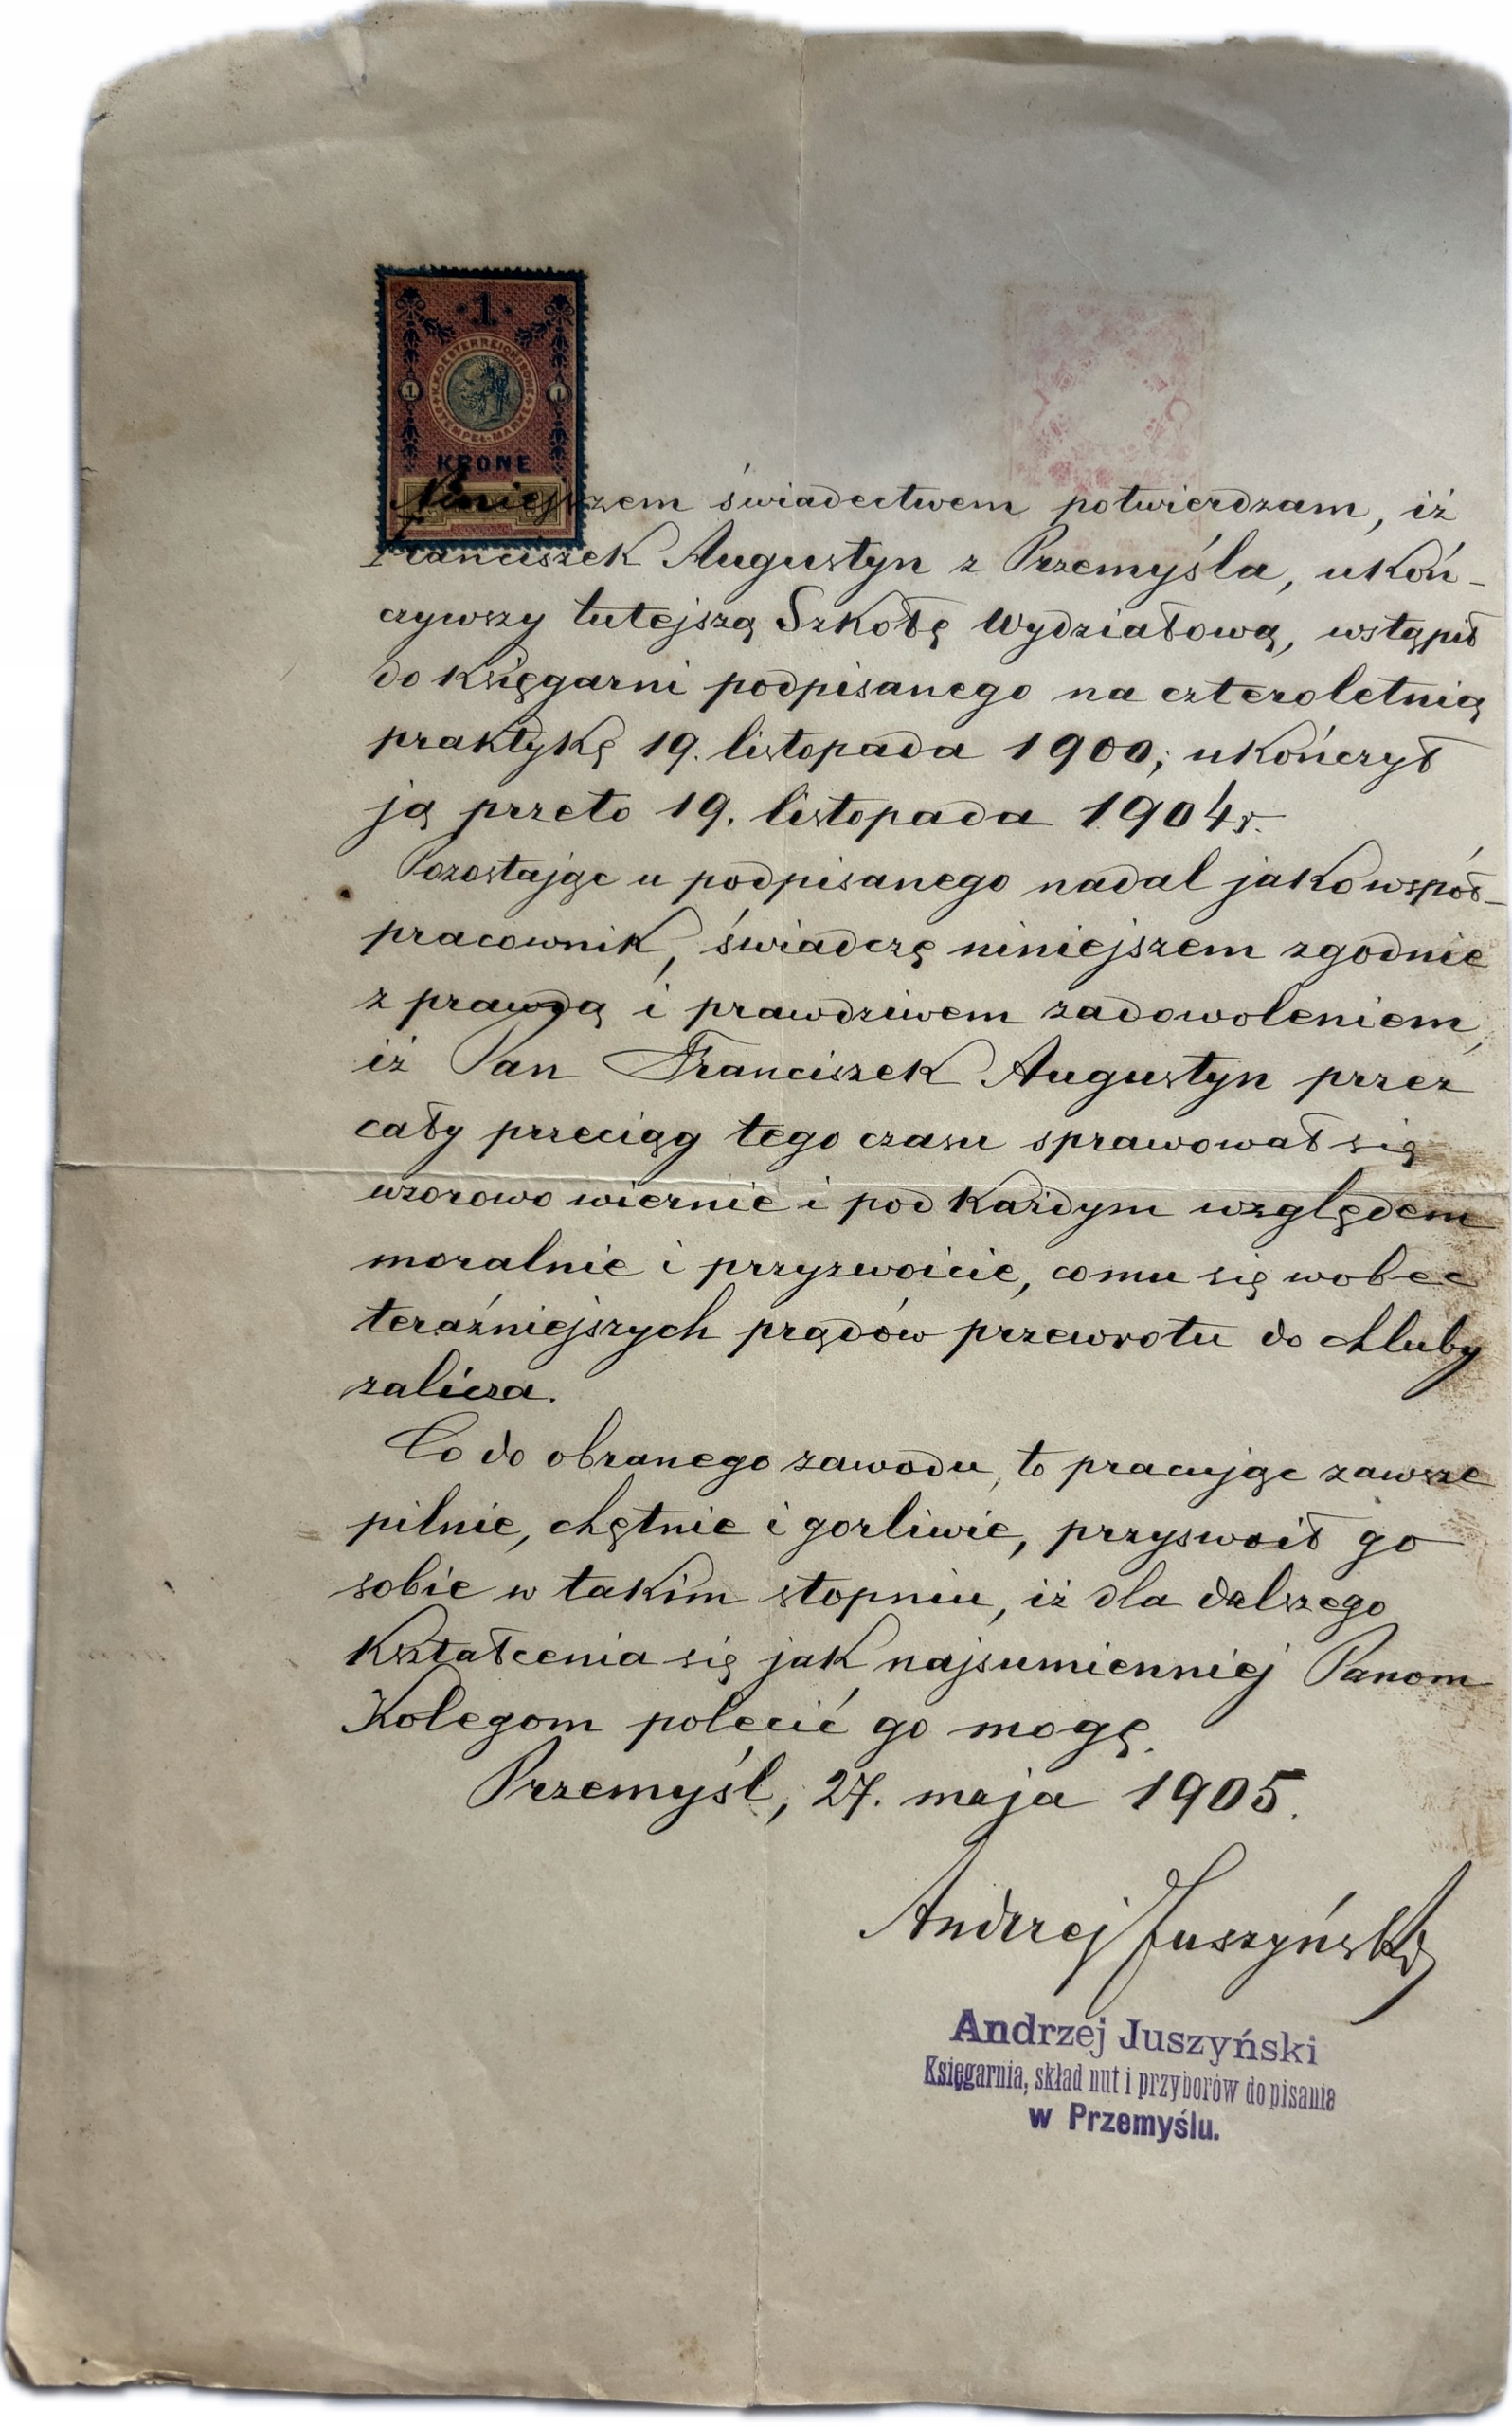 1
K.K. OESTERREICHISCHE
STEMPEL-MARKE
1 1
KRONE
Niniejszem świadectwem potwierdzam, iż
Franciszek Augustyn z Przemyśla, ukoń-
czywszy tutejszą Szkołę Wydziałową, wstąpił
do księgarni podpisanego na czteroletnią
praktykę 19. listopada 1900; ukończył
ją przeto 19. listopada 1904 r.
Pozostając u podpisanego nadal jako współ-
pracownik, świadczę niniejszem zgodnie
z prawdą i prawdziwem zadowoleniem,
iż Pan Franciszek Augustyn przez
cały przeciąg tego czasu sprawował się
wzorowo wiernie i pod każdym względem
moralnie i przyzwoicie, co mu się wobec
teraźniejszych prądów przewrotu do chluby
zalicza.
Co do obranego zawodu, to pracując zawsze
pilnie, chętnie i gorliwie, przyswoił go
sobie w takim stopniu, iż dla dalszego
kształcenia się jak najsumienniej Panom
Kolegom polecić go mogę.
Przemyśl, 27. maja 1905.
Andrzej Juszyński
Andrzej Juszyński
Księgarnia, skład nut i przyborów do pisania
w Przemyślu.